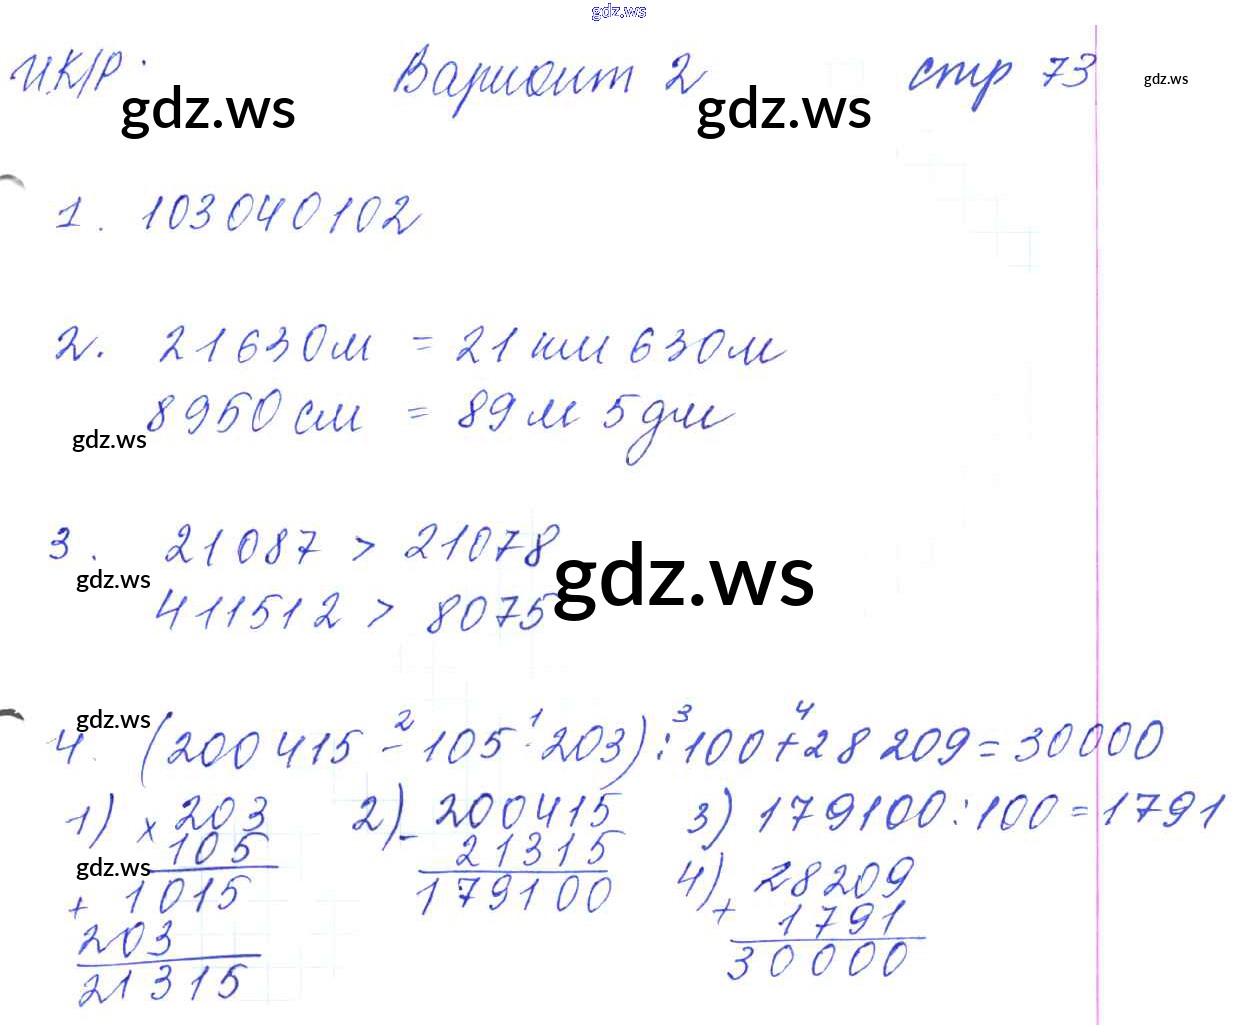 gdz.ws
И.К/Р. Вариант 2 стр 73
gdz.ws gdz.ws gdz.ws
1. 103040102
2. 21630м = 21 км 630м
8950 см = 89 м 5 дм
gdz.ws
3. 21087 > 21078
gdz.ws gdz.ws
411512 > 8075
gdz.ws
4. (200415 -² 105 ·¹ 203) :³ 100 +⁴ 28209 = 30000
1) × 203 2) - 200415 3) 179100 : 100 = 1791
105 21315
gdz.ws
+ 1015 179100 4) + 28209
203 1791
21315 30000